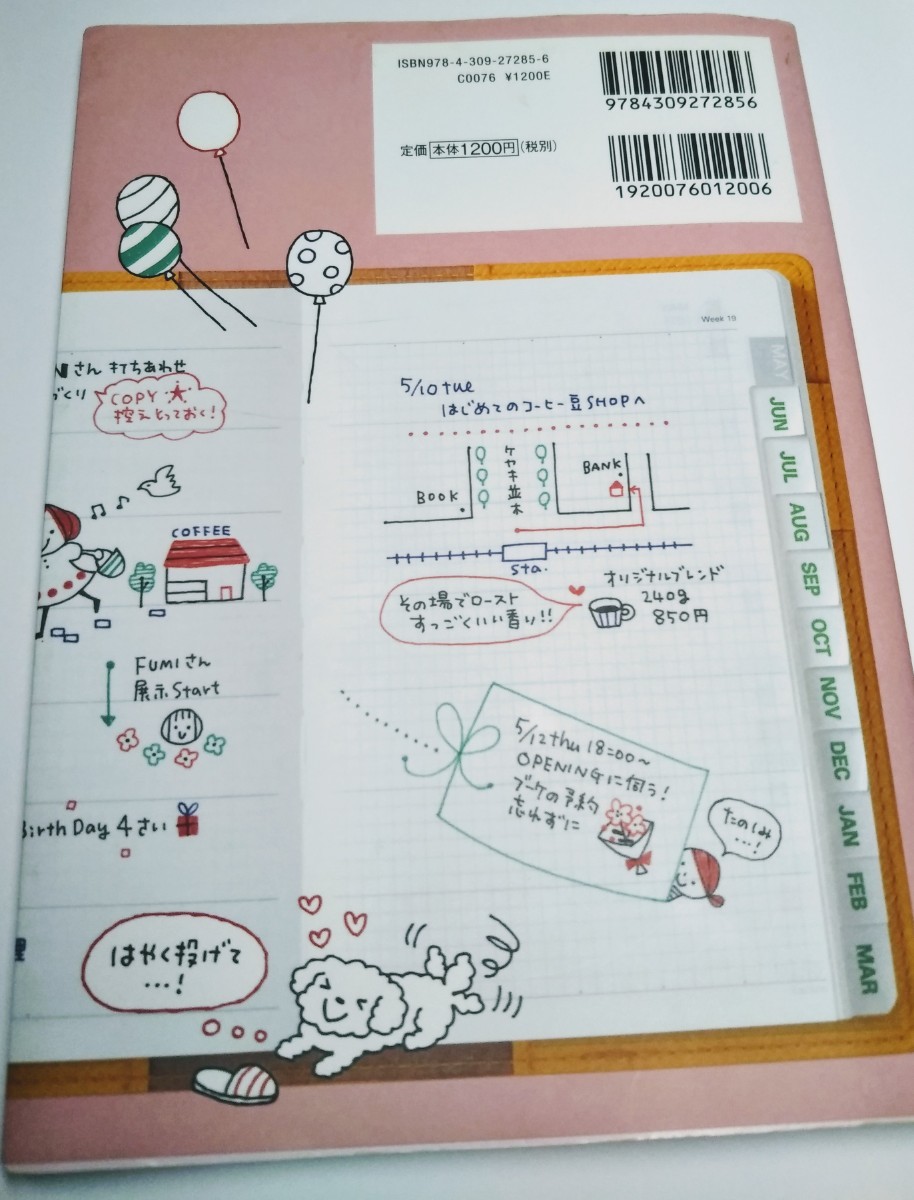 ISBN978-4-309-27285-6
C0076 ¥1200E
9784309272856
定価 本体1200円(税別)
1920076012006
Week 19
MAY
JUN
JUL
AUG
SEP
OCT
NOV
DEC
JAN
FEB
MAR
さん 打ちあわせ
づくり
COPY
控えとっておく!
COFFEE
FUMIさん
展示Start
BirthDay 4さい
はやく投げて
…!
5/10 tue
はじめてのコーヒー豆SHOPへ
BOOK
ケヤキ並木
BANK
Sta.
その場でロースト
すっごくいい香り!!
オリジナルブレンド
240g
850円
5/12 thu 18:00~
OPENINGに伺う!
ブーケの予約
忘れずに
たのしみ
…!